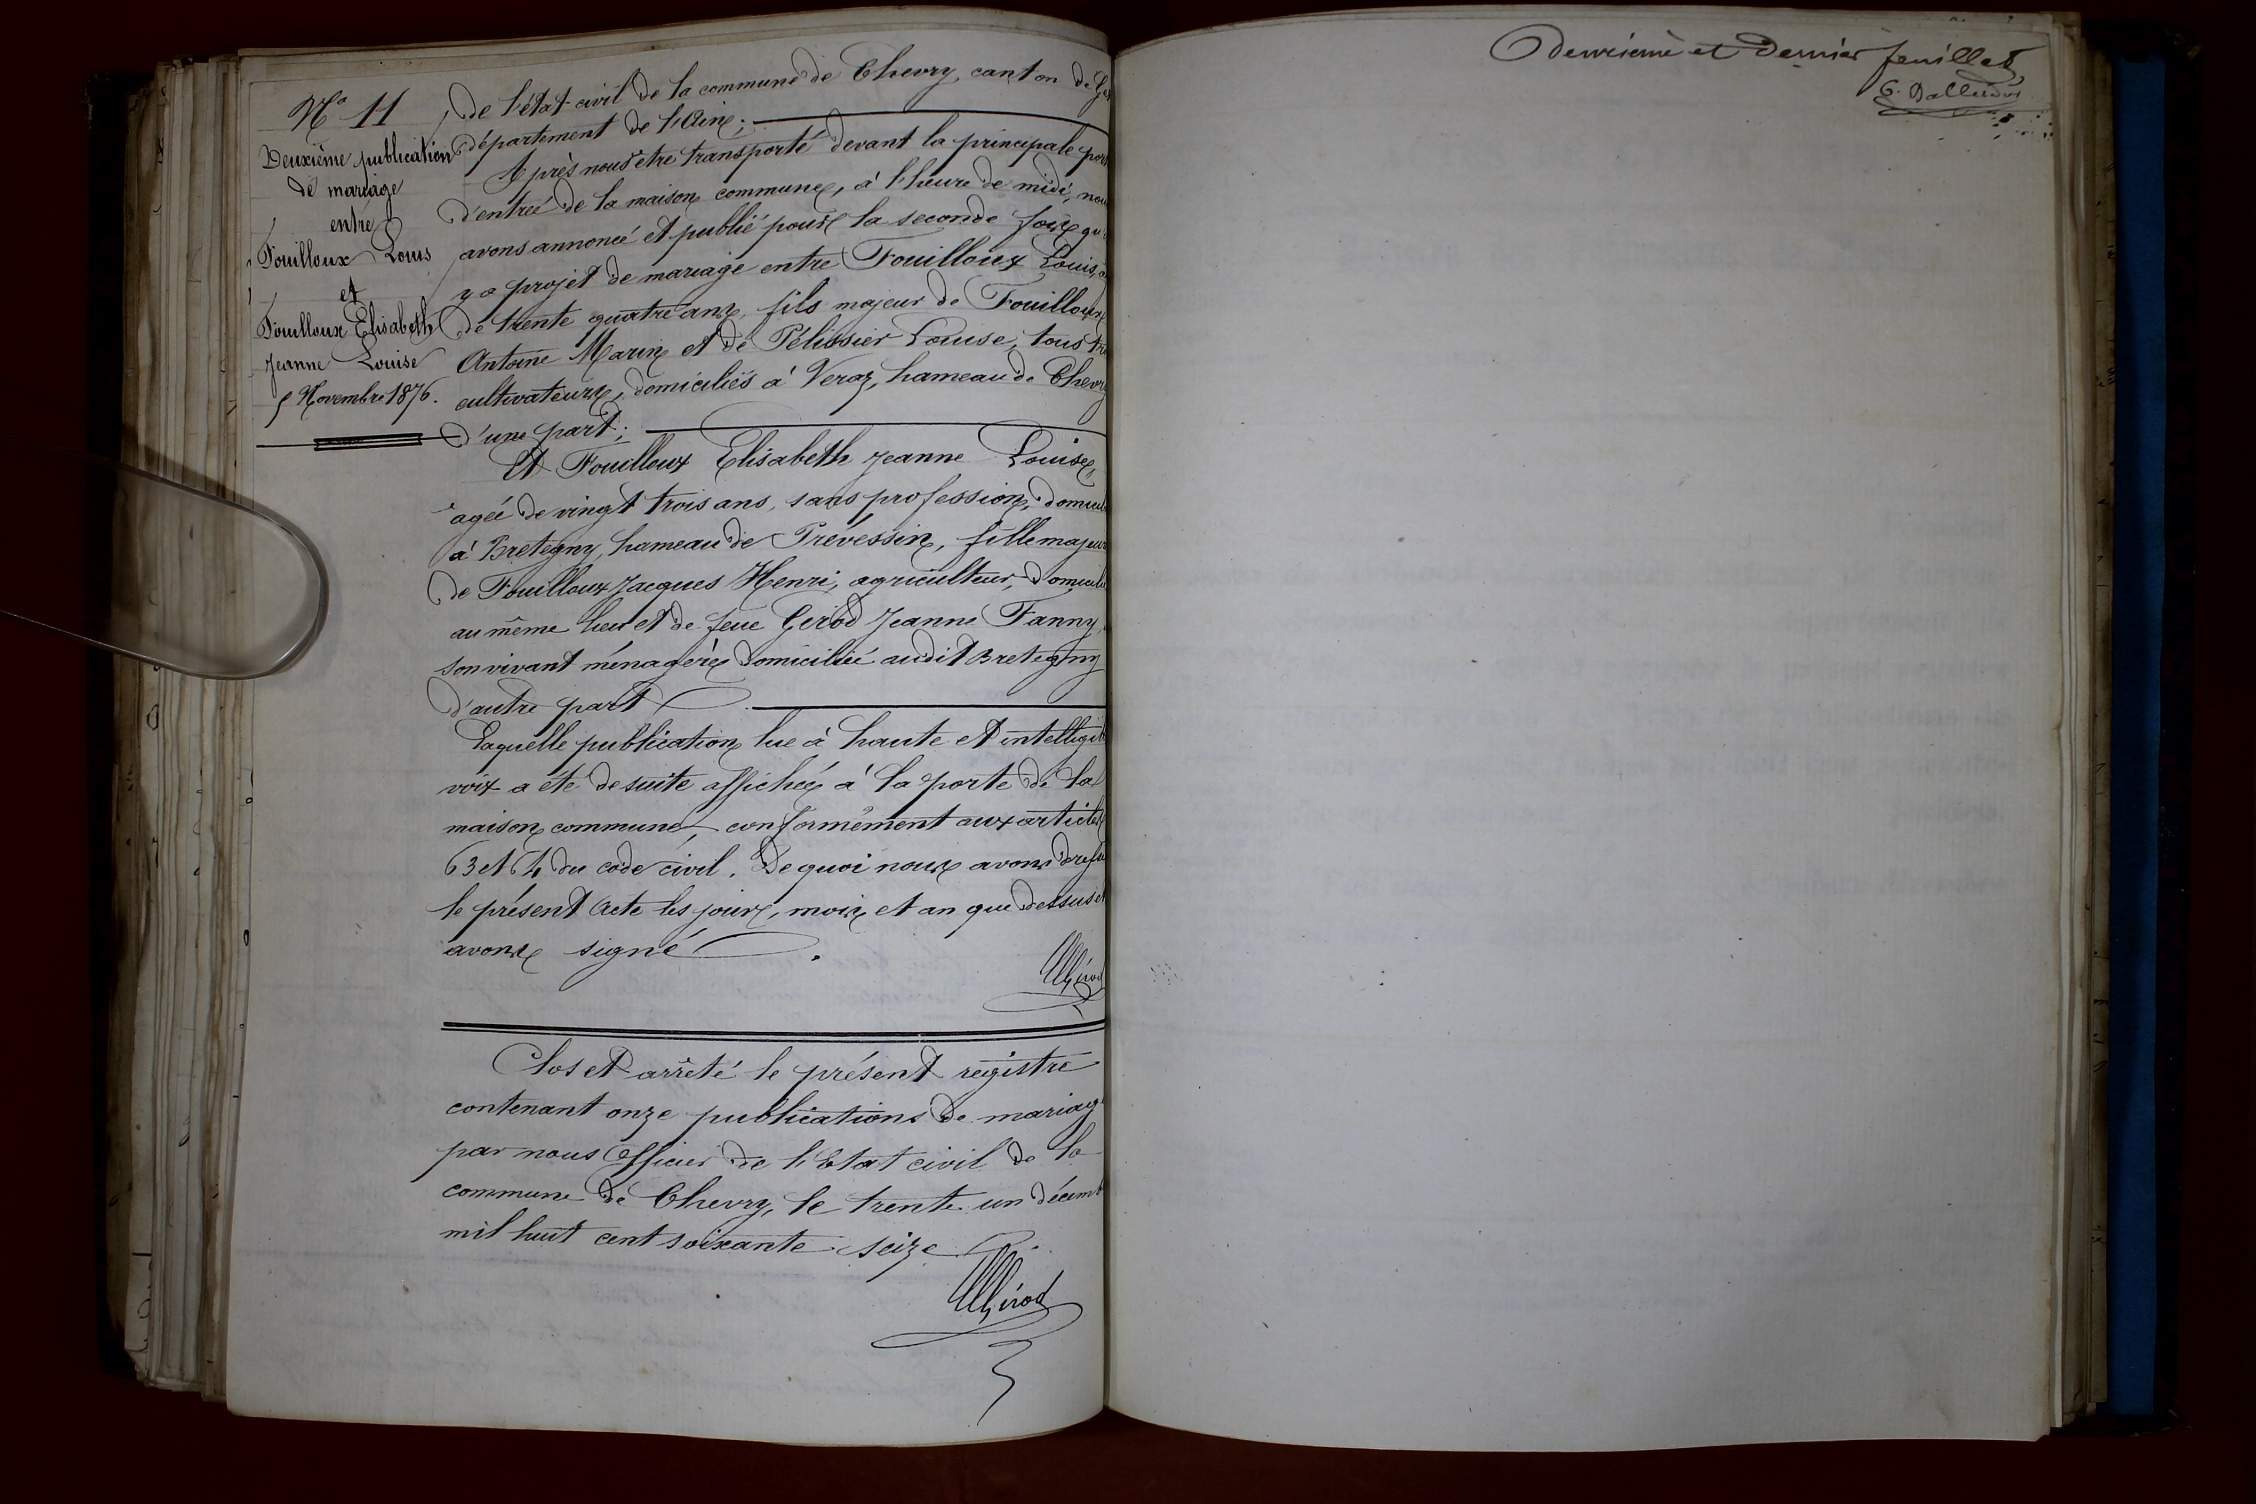 No 11
Deuxième publication
de mariage
entre
Fouilloux Louis
et
Fouilloux Elisabeth
Jeanne Louise
5 Novembre 1876.
de l'état-civil de la commune de Chevry, canton de Gex
département de l'Ain;
Après nous être transporté devant la principale port
d'entrée de la maison commune, à l'heure de midi, nou
avons annoncé et publié pour la seconde fois qu'
y a projet de mariage entre Fouilloux Louis,
de trente quatre ans, fils majeur de Fouilloux
Antoine Marin et de Pélissier Louise, tous tr
cultivateurs, domiciliés à Veraz, hameau de Chevry
d'une part;
Et Fouilloux Elisabeth Jeanne Louise,
agée de vingt trois ans, sans profession, domicil
à Bretegny, hameau de Prévessin, fille majeur
de Fouilloux Jacques Henri, agriculteur, domicilié
au même lieu et de feue Gerod Jeanne Fanny,
son vivant ménagère domiciliée audit Bretegny
d'autre part
Laquelle publication lue à haute et intelligib
voix a été de suite affichée à la porte de la
maison commune, conformément aux articles
63 et 64 du code civil. De quoi nous avons dressé
le présent acte les jours, mois et an que dessus et
avons signé.
Gérod
Clos et arrêté le présent registre
contenant onze publications de mariage
par nous officier de l'Etat civil de la
commune de Chevry, le trente un décemb
mil huit cent soixante seize.
Gérod
Deuxième et dernier feuillet,